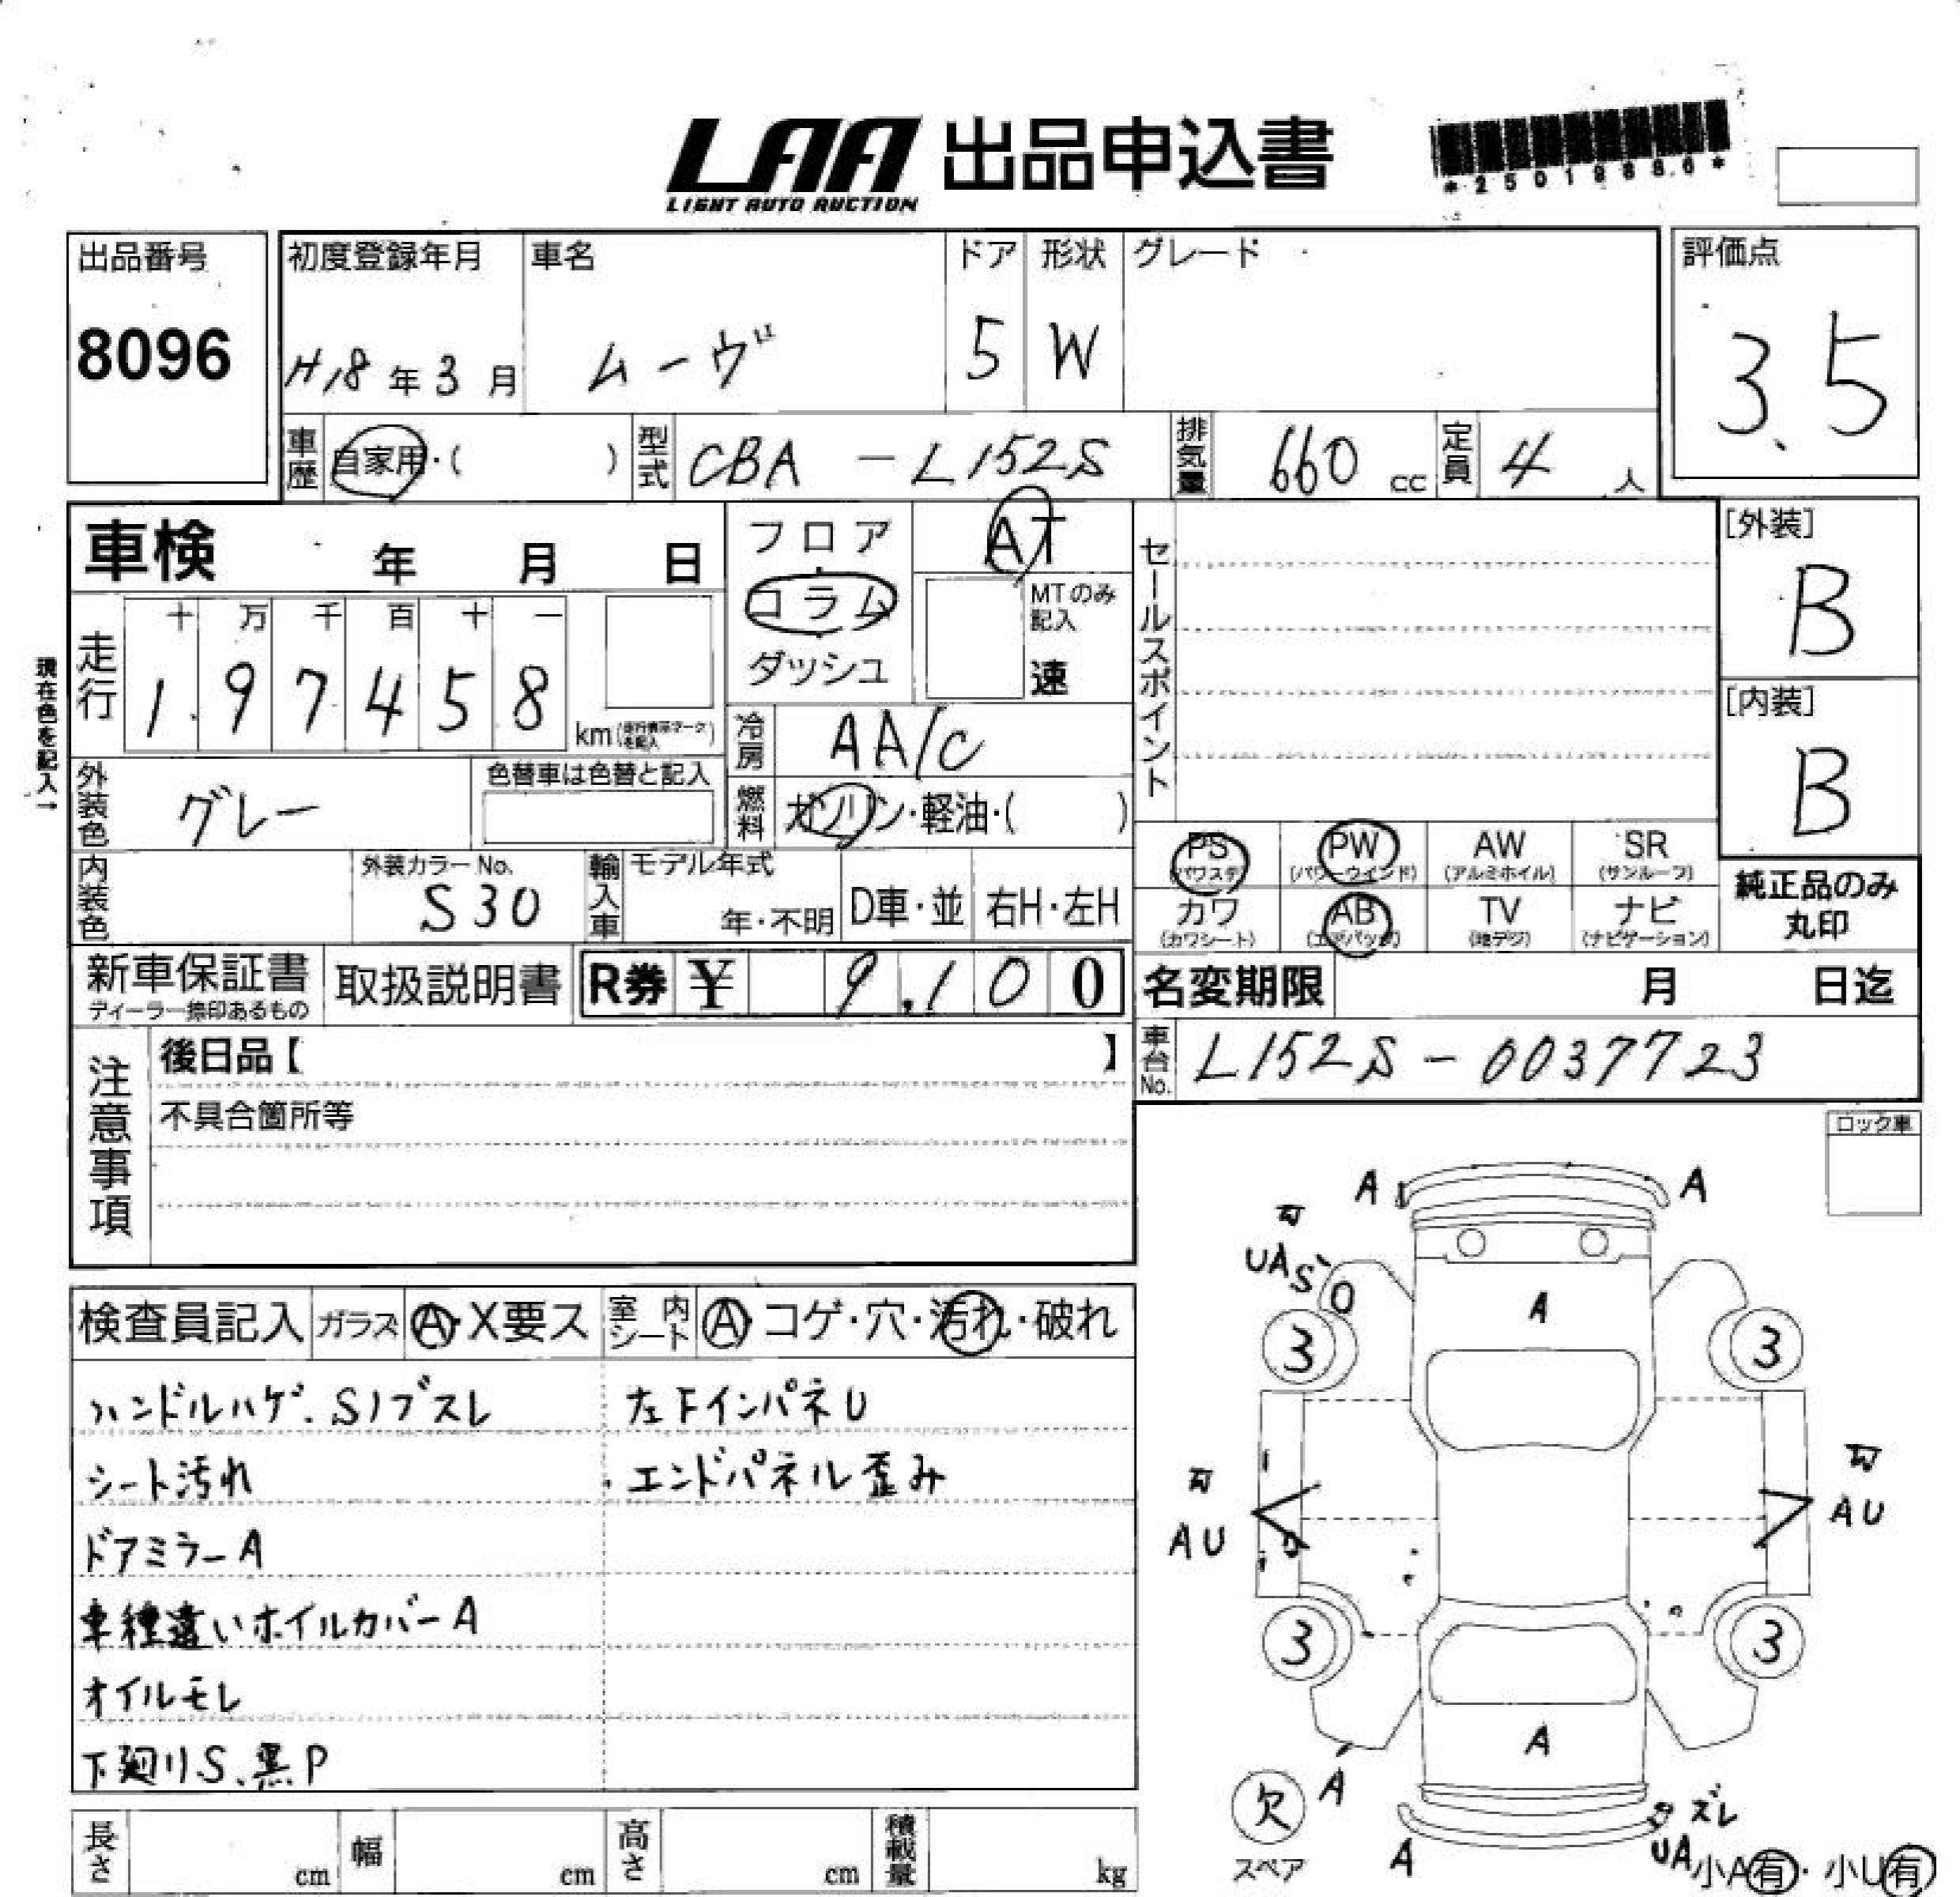 LAA 出品申込書
LIGHT AUTO AUCTION
出品番号
8096
初度登録年月 車名 ドア 形状 グレード
H18年3月 ムーヴ 5 W
評価点
3.5
車歴 自家用・( ) 型式 CBA - L152S 排気量 660 cc 定員 4 人
車検 年 月 日
フロア
コラム
ダッシュ
AT
MTのみ
記入
速
セールスポイント
[外装]
B
[内装]
B
現在色を記入→
走行 十 万 千 百 十 一
1 9 7 4 5 8 km
冷房 AA/C
外装色 グレー 色替車は色替と記入
燃料 ガソリン・軽油・( )
内装色 外装カラーNo.
S30
輸入車 モデル年式
年・不明 D車・並 右H・左H
PS PW AW SR
(パワステ) (パワーウインド) (アルミホイル) (サンルーフ)
カワ AB TV ナビ
(カワシート) (エアバッグ) (地デジ) (ナビゲーション)
純正品のみ
丸印
新車保証書
ディーラー捺印あるもの
取扱説明書 R券 ¥ 9.100
名変期限 月 日迄
車台No. L152S-0037723
注意事項
後日品【 】
不具合箇所等
ロック車
検査員記入 ガラス A・X要ス 室内シート A コゲ・穴・汚れ・破れ
ハンドルハゲ.Sノブスレ
シート汚れ
ドアミラーA
車種違いホイルカバーA
オイルモレ
下廻りS、黒P
左FインパネU
エンドパネル歪み
A A
UAS
A
3 3
AU
AU
3 3
A
欠 A
スペア
A
ズレ
UA
小A有・小U有
長さ cm 幅 cm 高さ cm 積載量 kg